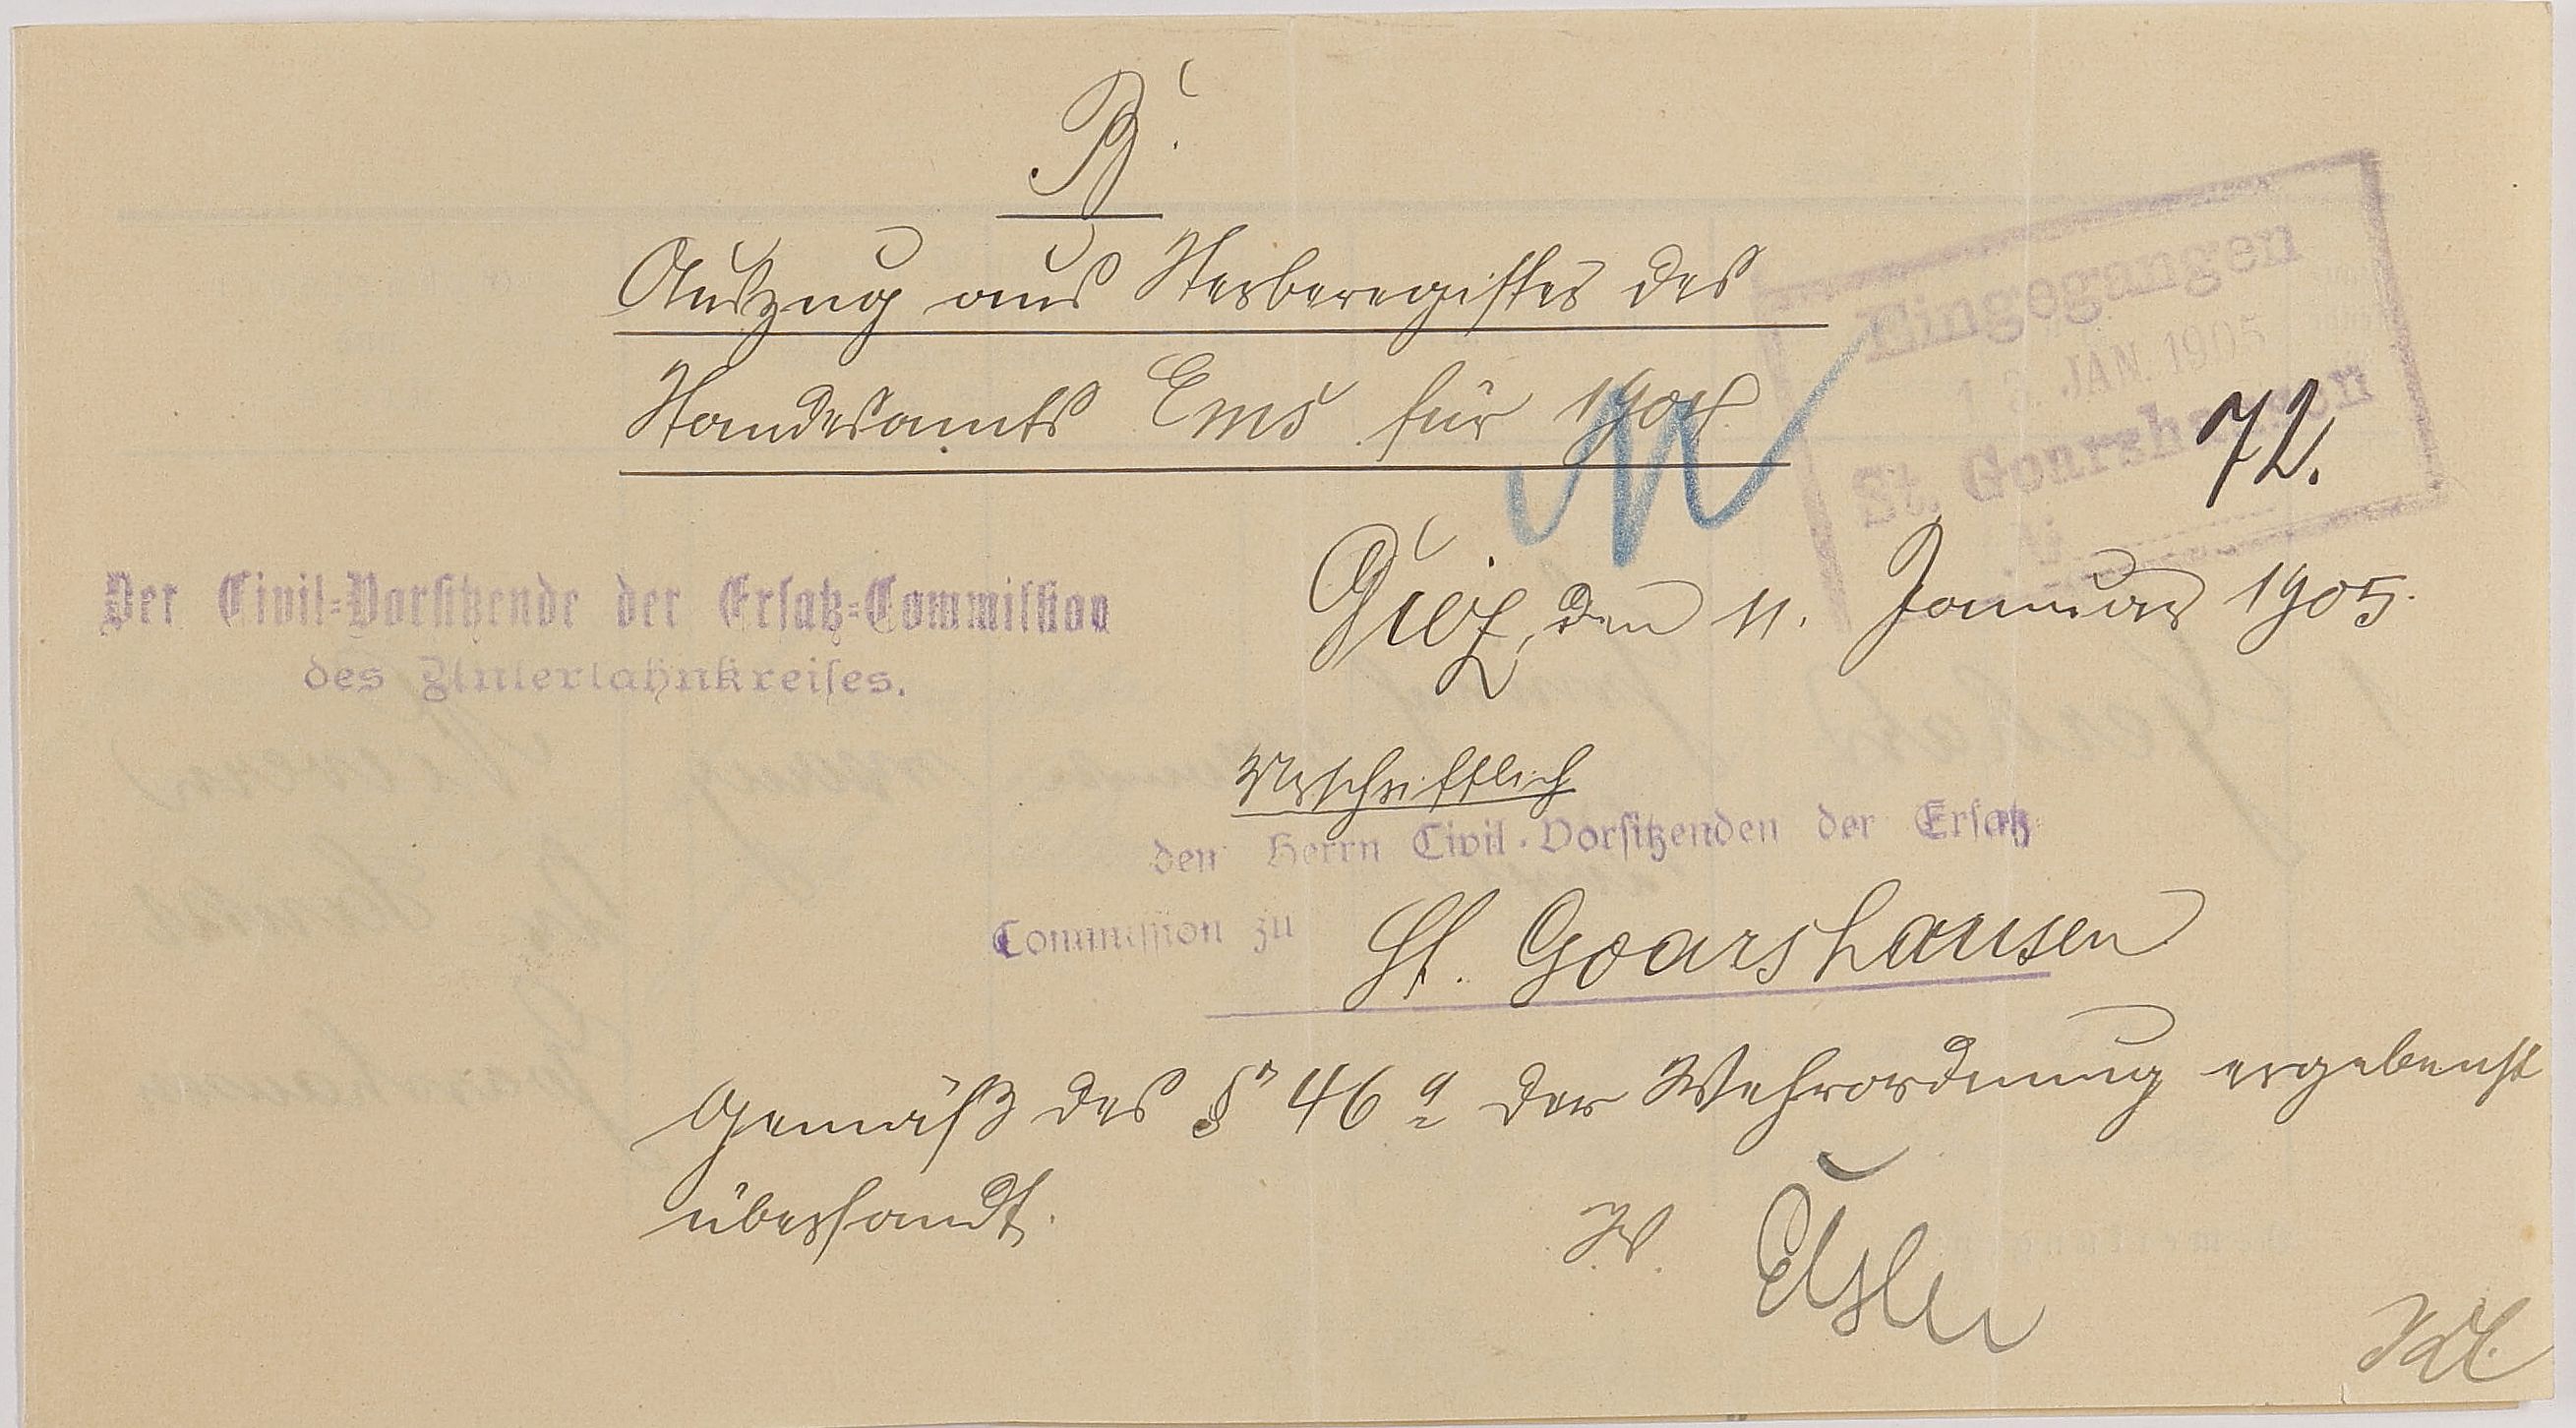 B.
Auszug aus Sterberegister des
Standesamts Ems für 1904.
Eingegangen
13. JAN. 1905
St. Goarshausen
72.
Der Civil-Vorsitzende der Ersatz-Commission
des Unterlahnkreises.
Diez, den 11. Januar 1905.
Urschriftlich
den Herrn Civil-Vorsitzenden der Ersatz-
Commission zu St. Goarshausen
Gemäß des § 46 a der Wehrordnung ergebenst
übersandt.